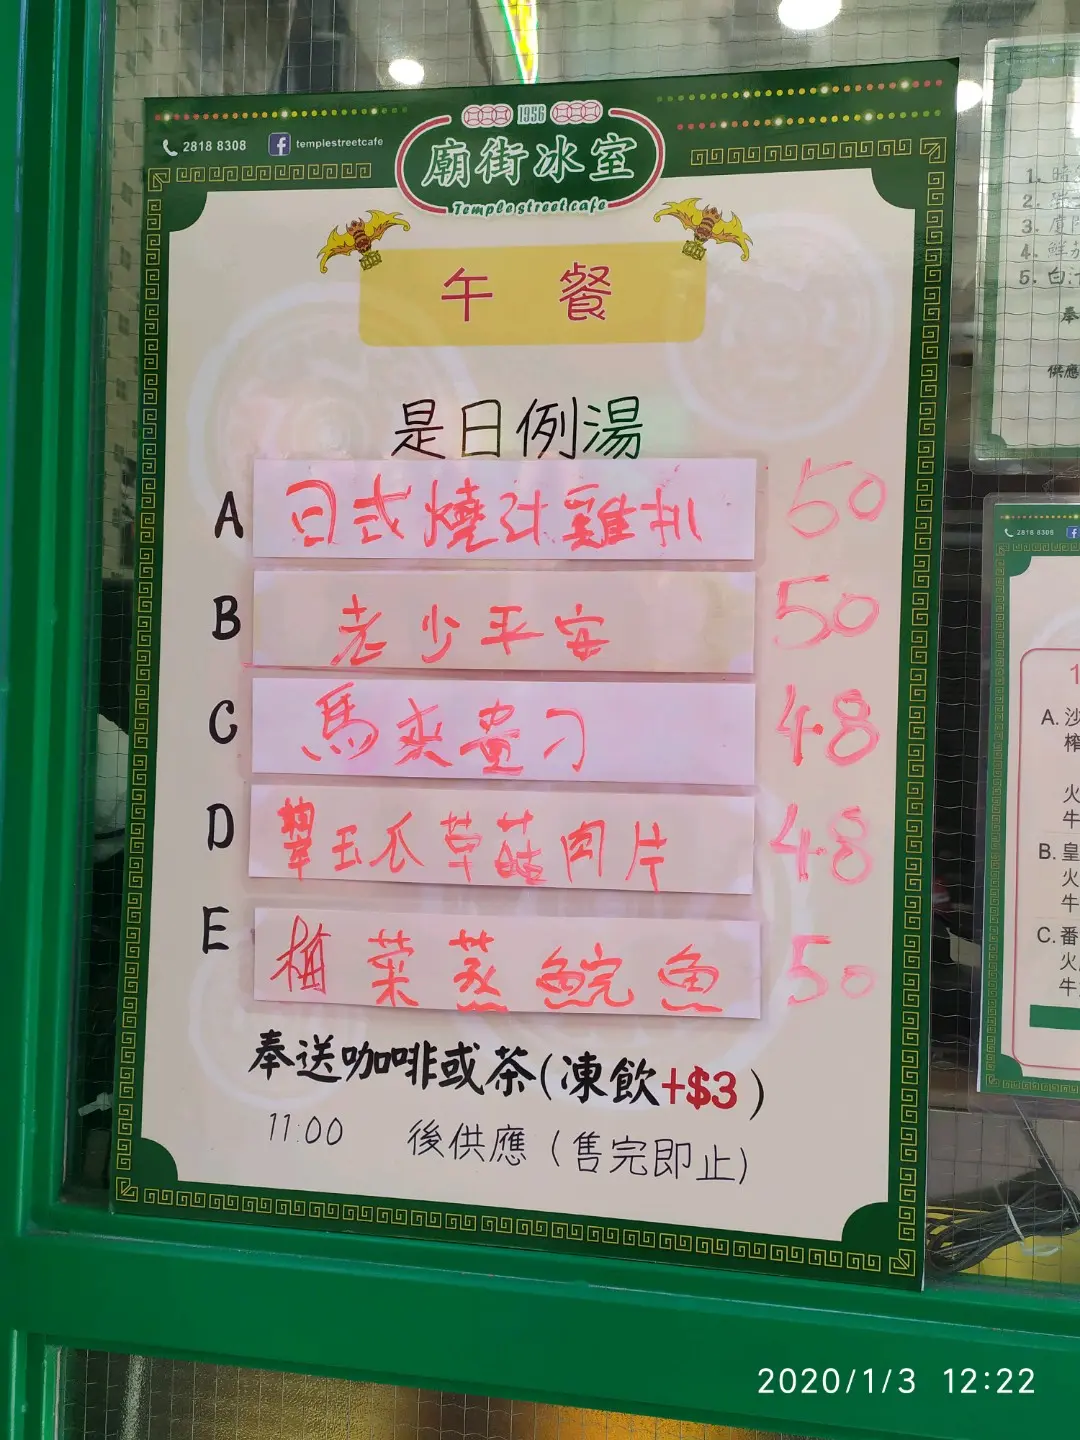 1956
2818 8308 templestreetcafe
廟街冰室
Temple street cafe
午餐
是日例湯
A 日式燒汁雞扒 50
B 老少平安 50
C 馬夾畫刁 48
D 翠玉瓜草菇肉片 48
E 梅菜蒸鯇魚 50
奉送咖啡或茶(凍飲+$3)
11:00 後供應(售完即止)
1.
2.
3.
4. 鮮
5. 白汁
奉
供應
2818 8308
1
A. 沙
榨
火
牛
B. 皇
火
牛
C. 番
火
牛
2020/1/3 12:22